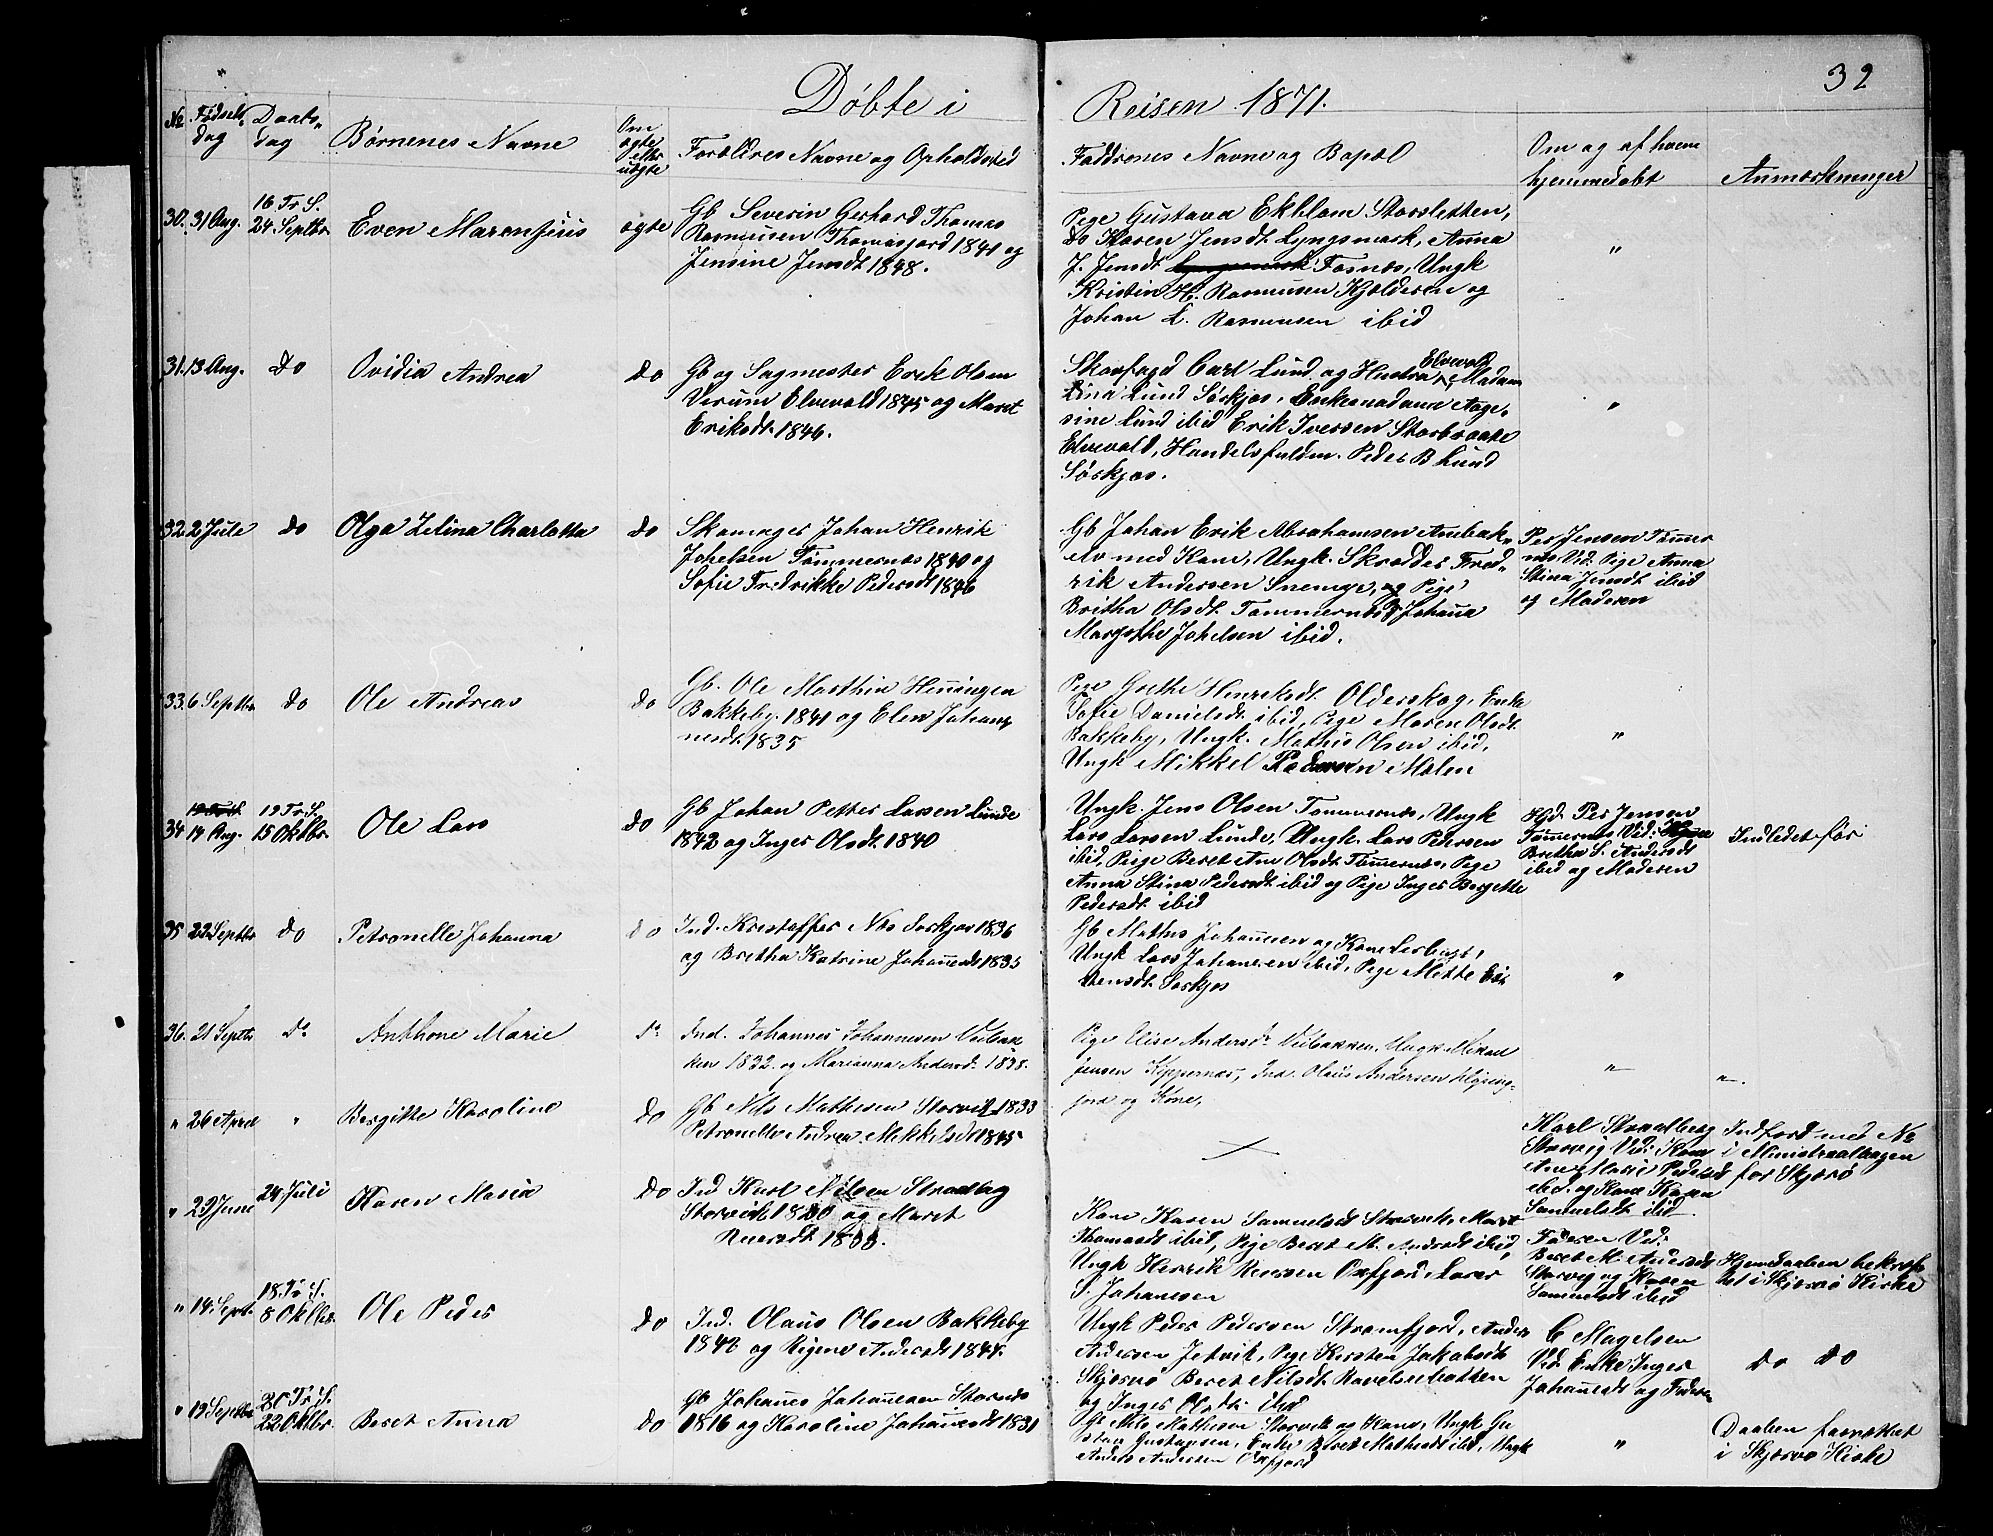 32
Døbte i Reisen 1871.
No
Fødsels-
dag
Daabs-
dag
Børnenes Navne
Om
ægte
eller
uægte
Forældres Navne og Opholdsted
Faddrenes Navne og Bopæl
Om og af hvem
hjemmedøbt
Anmærkninger
30. 31 Aug.
16 Tr. S.
24 Septbr.
Even Marensius
ægte
Gb Severin Gerhard Thomas
Rasmusen Thomasjord 1841 og
Jensine Jensdt. 1848.
Pige Gustava Ekhlom Storsletten,
Do Karen Jensdt. Lyngsmark, Anna
J. Jensdt. Forsnæs, Ungk
Kristin H. Rasmusen Kjelderen og
Johan L. Rasmusen ibid
"
31. 13 Aug.
Do
Ovidia Andrea
Do
Gb og Sagmester Erik Olsen
Verum Elvevold 1845 og Maret
Eriksdt. 1846.
Skovfogd Carl Lund og Hustru Elvevold, Madam
Lina Lund Sørkjos, Enkemadame Aage-
sine Lund ibid Erik Iversen Storbraate
Elvevold, Handelsfuldm. Peder B Lund
Sørkjos.
"
32. 2 Juli
Do
Olga Zelina Charlotta
Do
Skomager Johan Henrik
Johelsen Tømmernæs 1840 og
Sofie Fredrikke Pedersdt 1846
Gb Johan Erik Abrahamsen Anebak-
elv med Kone, Ungk. Skrædder Fred-
rik Andersen Snemye, og Pige
Britha Olsdt. Tømmernæs, Johana
Margrethe Johelsen ibid.
Per Jensen Tømer
næs Vid. Pige Anna
Stina Jensdt ibid
og Moderen
33. 6 Septbr
Do
Ole Andreas
Do
Gb. Ole Marthin Heningen
Bakkeby. 1841 og Elen Johan-
nesdt. 1835
Pige Grethe Henriksdt. Olderskog, Enke
Sofie Danielsdt. ibid, Pige Maren Olsdt.
Bakkeby, Ungk. Mathis Olsen ibid,
Ungk Mikkel Pedersen Molen
"
34
14 Aug.
19 Tr. S.
15 Oktbr.
Ole Lars
Do
Gb Johan Petter Larsen Lunde
1842 og Inger Olsdt. 1840
Ungk. Jens Olsen Tømmernæs, Ungk
Lars Larsen Lunde, Ungk. Lars Pedersen
ibid, Pige Beret An Olsdt. Tømernæs, Pige
Anna Stina Pedersdt. ibid og Pige Inger Bergette
Pedersdt. ibid
Hjd. Per Jensen
Tømernæs Vid:
Bretha S. Andersdt
ibid og Moderen
Indledet før
35 22 Septbr
Do
Petronelle Johanna
Do
Ind. Kristoffer Nils Sørkjos 1836
og Bretha Katrine Johanesdt 1835
Gb Mathis Johanesen og Kone Lerbugt,
Ungk Lars Johanesen ibid, Pige Mette Eri-
stensdt. Sørkjos
"
36. 21 Septbr
Do
Anthone Marie
Do
Ind. Johannes Johannesen Veibak
ken 1832. og Marianna Andersd. 1838.
Pige Elise Andersdr Veibakken, Ungk. Mikal
Jensen Kippernæs, Ind. Olaus Andersen
fjord og Kone,
"
"
" 26 April
"
Bergitte Karoline
Do
Gb Nils Mathisen Storvik 1833
Petronelle Andrea Mikkelsdt 1845
Karl Strandberg
Storvig Vid: Kone
Ane Marie Pedersdt
ibid. og Kone Karen
Samuelsdt. ibid.
Indført med No
i Ministeralbogen
for Skjervø
" 23 Juni
24 Juli
Karen Maria
Do
Ind Karl Nilsen Strandbg
Storvik 1830 og Maret
1833.
Kone Karen Samuelsdt Storvik, Maret
Thomasdt ibid, Pige Beret M. Andersdt ibid,
Ungk Henrik Oxfjord Lærer
S. Johansen
Faderen Vid:
Beret M. Andersdt
Storvig og Karen
Samuelsdt ibid
Hjemdaaben bekræf-
tet i Skjervø Kirke
" 14. Sept.
18. Tr. S.
8 Oktbr.
Ole Peder
Do
Ind. Olaus Olsen Bakkeby
1842 og Andersdt 1844.
Ungk Peder Pedersen Straumfjord, Anders
Andersen Jetvik, Pige Kirsten Jakobsdt
Skjervø Beret Nilsdt.
og Inger Olsdt. ibid
C Magelsen
Vid. Enke Inger
Johanesdt og Faderen
Do Do
" 19 Septbr
20 Tr. S.
22 Oktbr.
Beret Anna
Do
Gb Johanes Johanesen Storvik
1816 og Karoline Johanesdt 1831
Gb Nils Mathisen Storvik og Kone, Ungk Gu
stav Gustavsen, Enke Beret Mathisdt ibid, Ungk
Anders Andersen Oxfjord
"
Daaben forrettet
i Skjervø Kirke